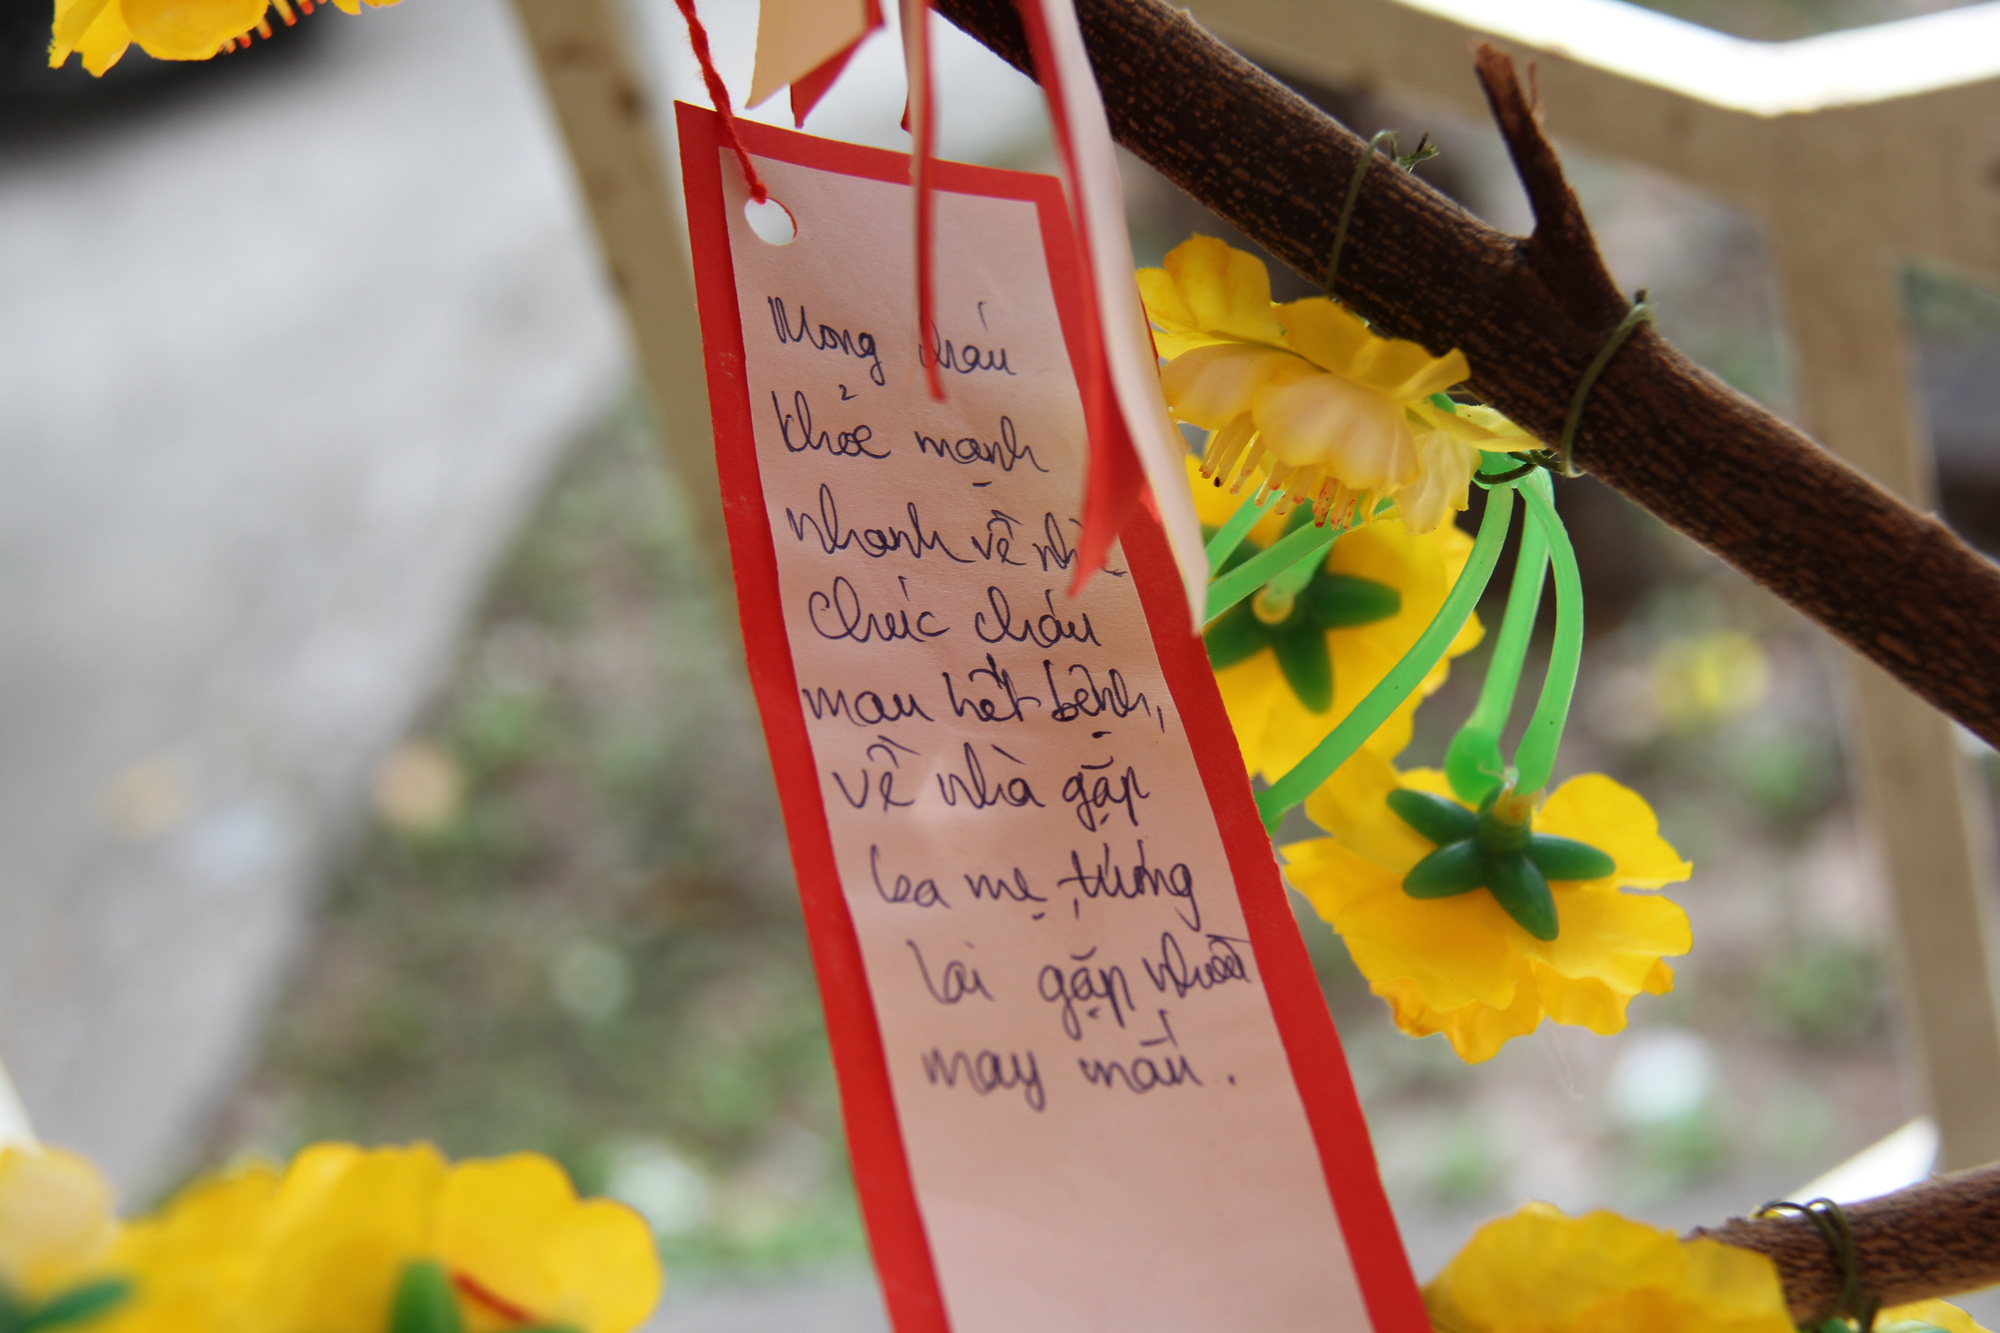 Mong cháu
khỏe mạnh
nhanh về nhà
Chúc cháu
mau hết bệnh,
về nhà gặp
ba mẹ,
lại gặp nhiều
may mắn.